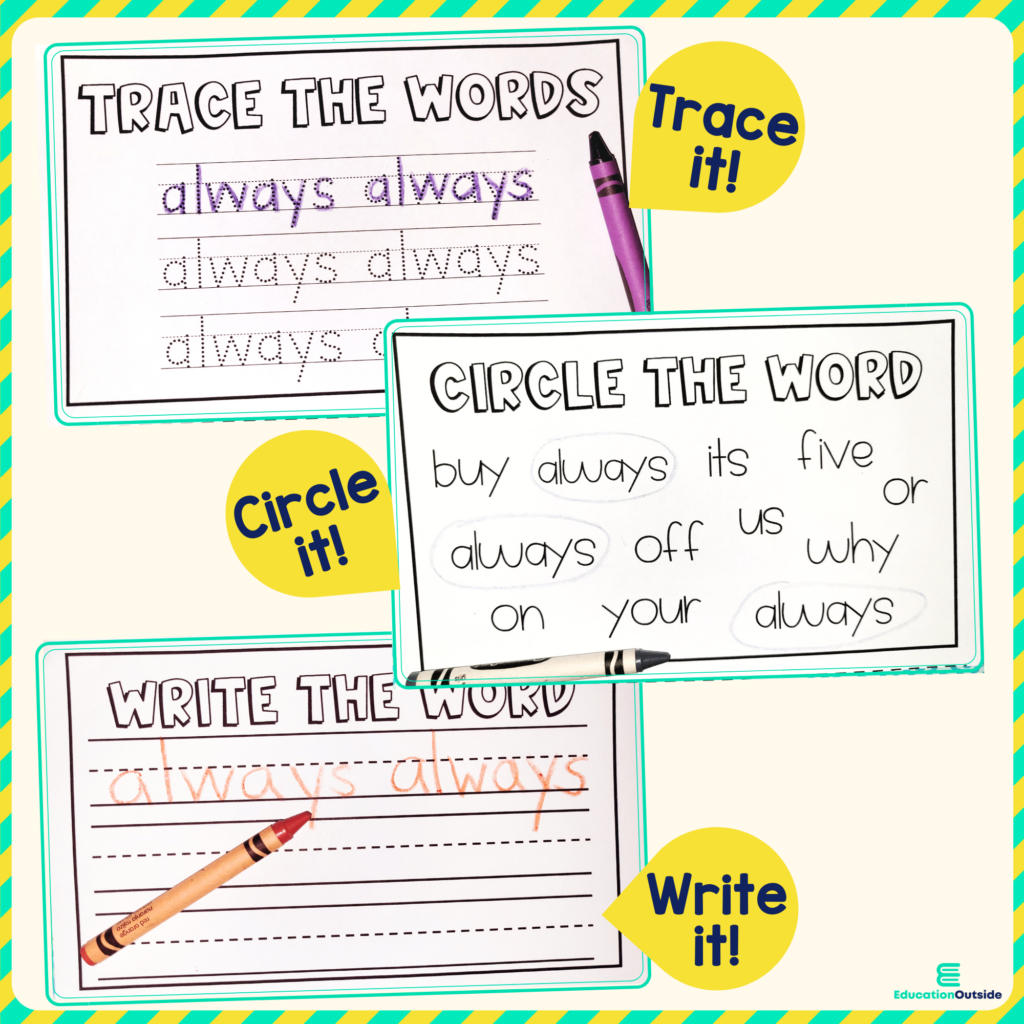 TRACE THE WORDS
always always
always always
always
Trace
it!
CIRCLE THE WORD
buy always its five
or
always off us why
on your always
Circle
it!
WRITE THE WORD
always always
red orange
naranja rojizo
Write
it!
EducationOutside